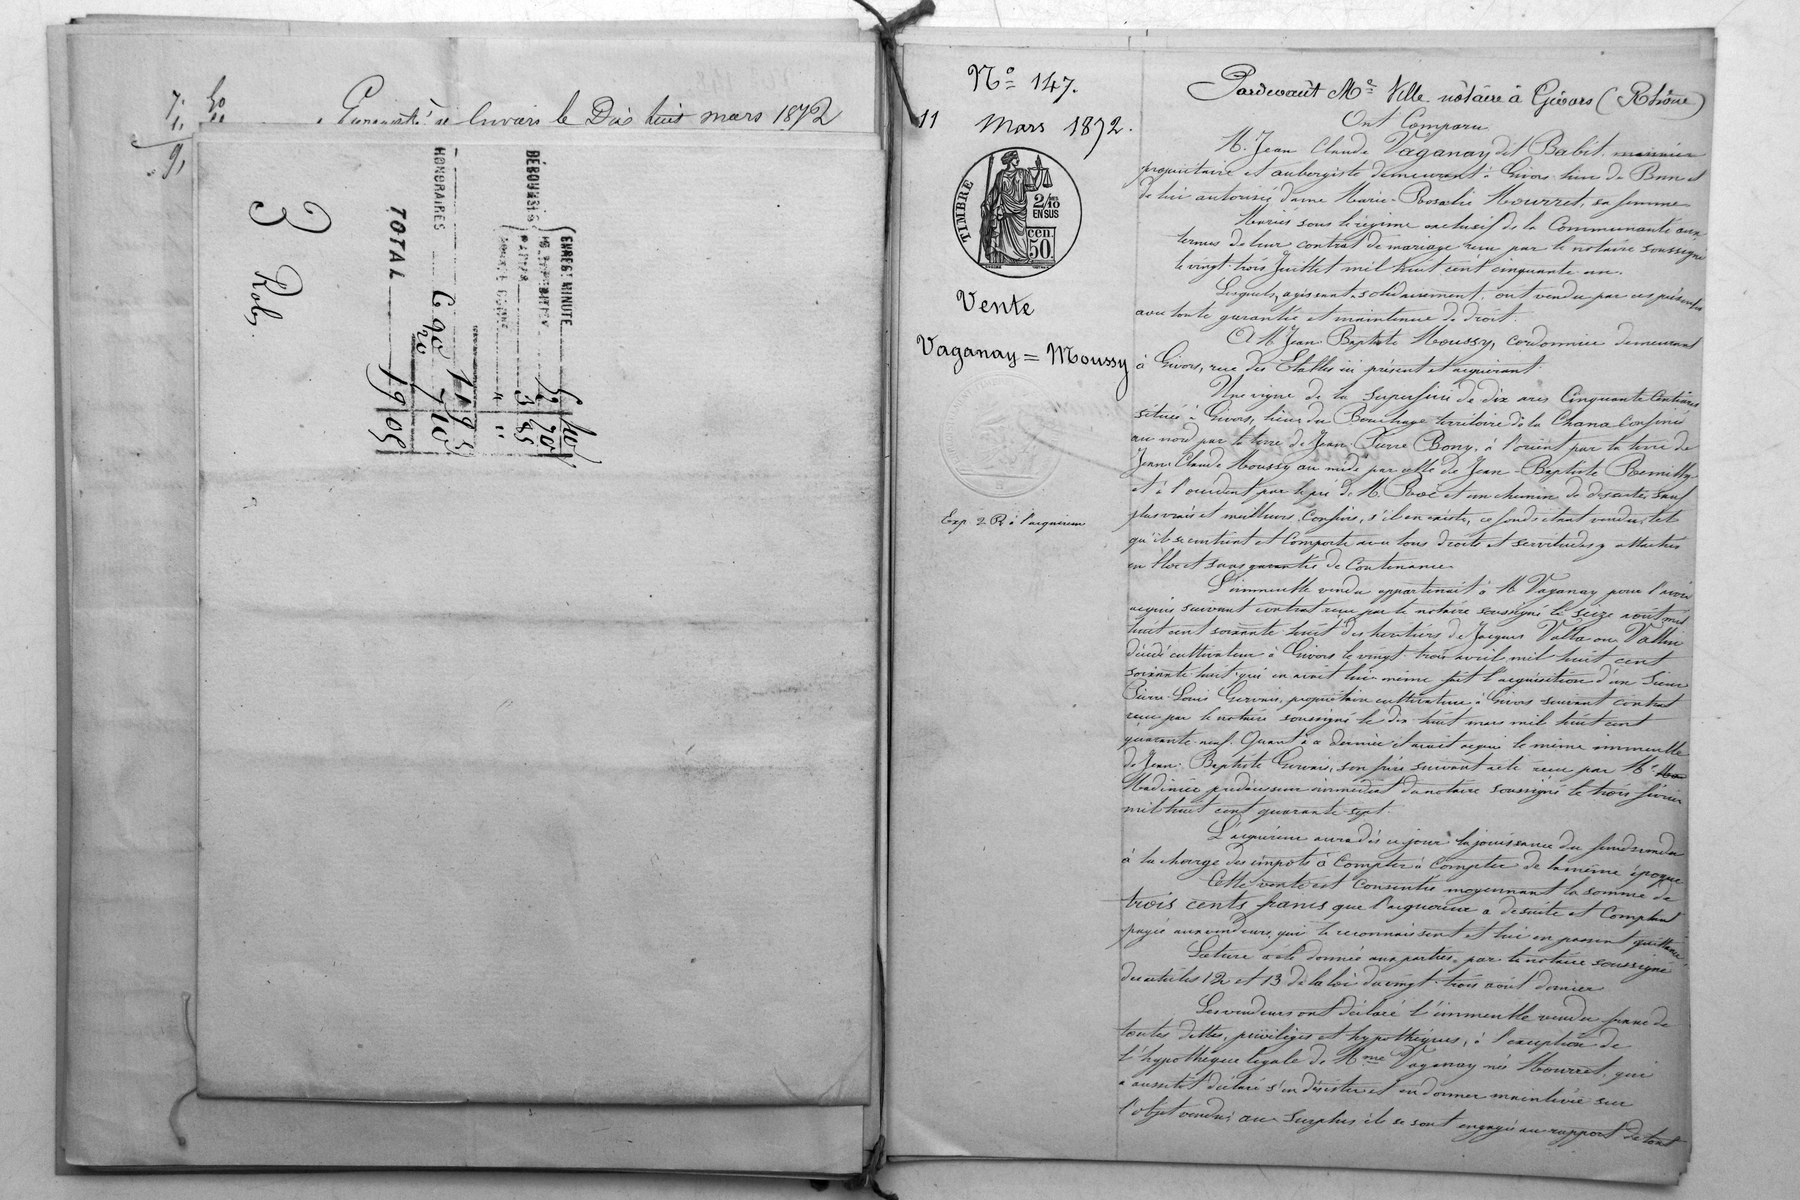 Enregistré à Givors le Dix huit mars 1872
DÉBOURSÉS
ENREGT MINUTE
HONORAIRES
TOTAL
3 Rob
No 147.
11 Mars 1872.
TIMBRE
2/10
EN SUS
50 cen.
Vente
Vaganay = Moussy
Exp 2 R à l'acquéreur
Pardevant Me Ville notaire à Givors (Rhône)
Ont Comparu
M. Jean Claude Vaganay dit Babit
propriétaire et aubergiste demeurant à Givors lieu de Bon et
de lui autorisée dame Marie-Rosalie Mourret, sa femme
Mariés sous le régime exclusif de la Communauté aux
termes de leur contrat de mariage reçu par le notaire soussigné
le vingt-trois Juillet mil huit cent cinquante un.
Lesquels, agissant solidairement ont vendu par ces présentes
avec toute garantie et maintenue de droit.
A M. Jean-Baptiste Moussy, cordonnier demeurant
à Givors, rue des Etables ici présent et acquérant.
Une vigne de la superficie de dix ares Cinquante Centiares
située à Givors, lieu du Bouchage territoire de la Chana Confinée
au nord par la terre de Jean-Pierre Bony, à l'orient par la terre de
Jean-Claude Moussy au midi par celle de Jean-Baptiste Remilly
et à l'occident par le pré de M. et un chemin de desserte, sauf
plus vrais et meilleurs Confins, s'il en existe, ce fonds étant vendu tel
qu'il se contient et Comporte avec tous droits et servitudes y attachés
en bloc et sans garantie de Contenance.
L'immeuble vendu appartenait à M Vaganay pour l'avoir
acquis suivant contrat reçu par le notaire soussigné le seize août mil
huit cent soixante huit des héritiers de Jacques Valla ou Vallin
décédé cultivateur à Givors le vingt trois avril mil huit cent
soixante huit qui en avait lui-même fait l'acquisition d'un sieur
Pierre-Louis Gervais, propriétaire cultivateur à Givors suivant contrat
reçu par le notaire soussigné le dix-huit mars mil huit cent
quarante-neuf. Quant à ce dernier il avait acquis le même immeuble
de Jean-Baptiste Gervais, son frère suivant acte reçu par Me
prédécesseur immédiat du notaire soussigné le trois février
mil huit cent quarante sept.
L'acquéreur aura dès ce jour la jouissance du fonds vendu
à la charge des impôts à Compter à Compter de la même époque
Cette vente est Consentie moyennant la somme de
trois cents francs que l'acquéreur a de suite et Comptant
payée aux vendeurs, qui le reconnaissent et lui en passent quittance.
Lecture a été donnée aux parties, par le notaire soussigné
des articles 12 et 13 de la loi du vingt-trois août dernier
Les vendeurs ont déclaré l'immeuble vendu franc de
toutes dettes, privilèges et hypothèques, à l'exception de
l'hypothèque légale de Mme Vaganay née Mourret, qui
a aussitôt déclaré s'en désister et en donner mainlevée sur
l'objet vendu; au surplus ils se sont engagés au rapport de tout